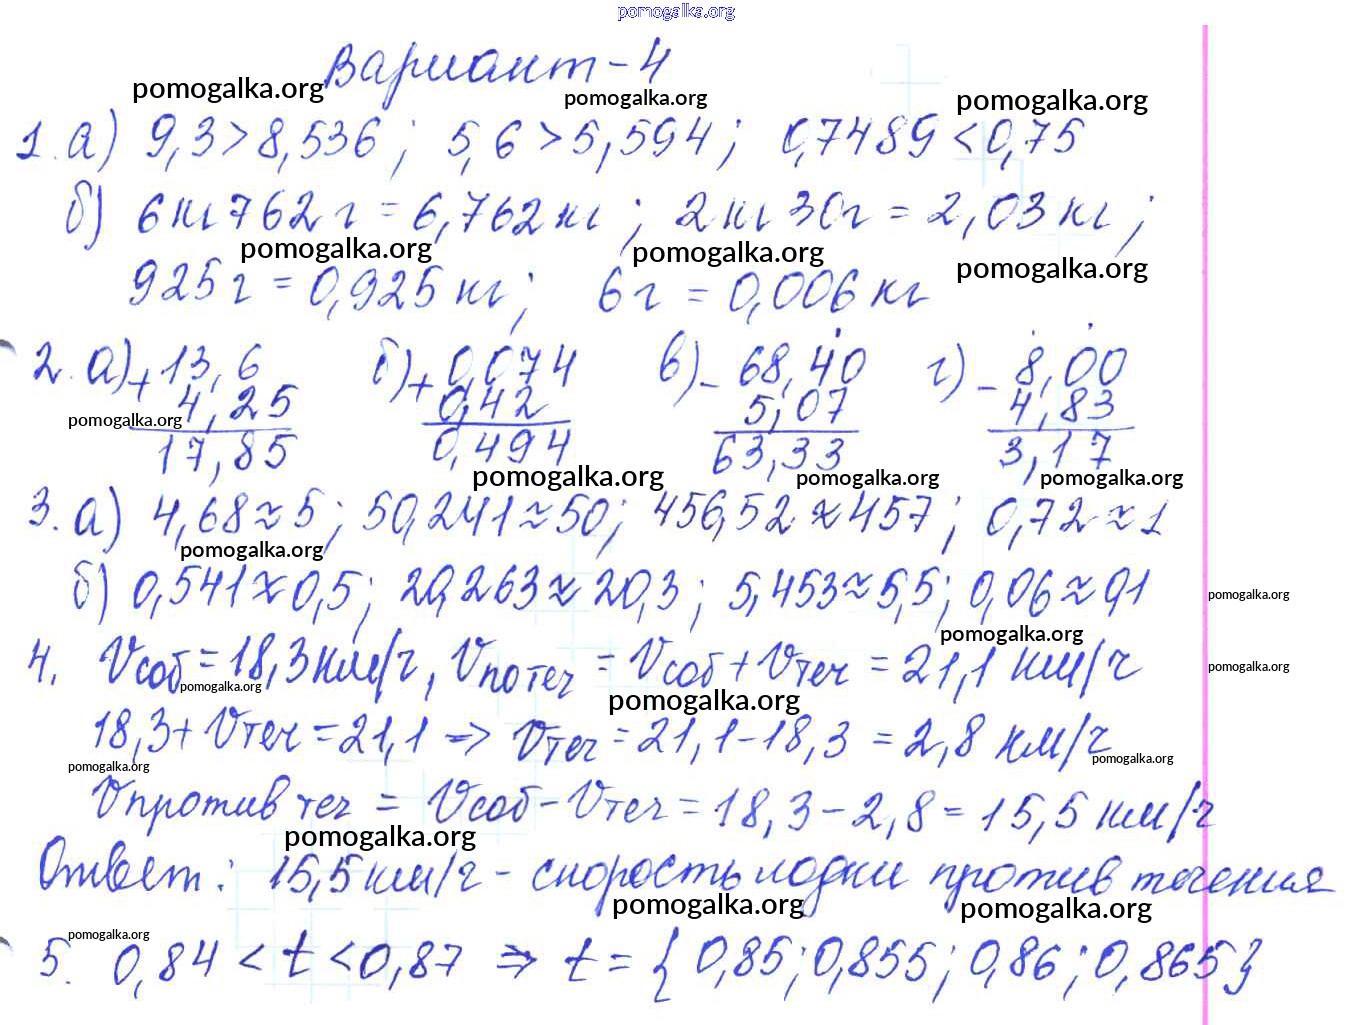 pomogalka.org
Вариант-4
pomogalka.org pomogalka.org pomogalka.org
1. а) 9,3>8,536; 5,6>5,594; 0,7489<0,75
б) 6кг762г=6,762кг; 2кг30г=2,03кг;
pomogalka.org pomogalka.org pomogalka.org
925г=0,925кг; 6г=0,006кг
2. а)+13,6 б)+0,074 в)-68,40 г)-8,00
4,25 0,42 5,07 4,83
pomogalka.org
17,85 0,494 63,33 3,17
pomogalka.org pomogalka.org pomogalka.org
3. а) 4,68≈5; 50,241≈50; 456,52≈457; 0,72≈1
pomogalka.org
б) 0,541≈0,5; 20,263≈20,3; 5,453≈5,5; 0,06≈0,1
pomogalka.org
pomogalka.org
4. Vсоб=18,3км/ч, Vпо теч=Vсоб+Vтеч=21,1 км/ч
pomogalka.org
pomogalka.org pomogalka.org
18,3+Vтеч=21,1 => Vтеч=21,1-18,3=2,8 км/ч
pomogalka.org pomogalka.org
Vпротив теч = Vсоб-Vтеч=18,3-2,8=15,5 км/ч
pomogalka.org
Ответ: 15,5км/ч - скорость лодки против течения
pomogalka.org pomogalka.org
pomogalka.org
5. 0,84<t<0,87 => t={0,85;0,855;0,86;0,865}